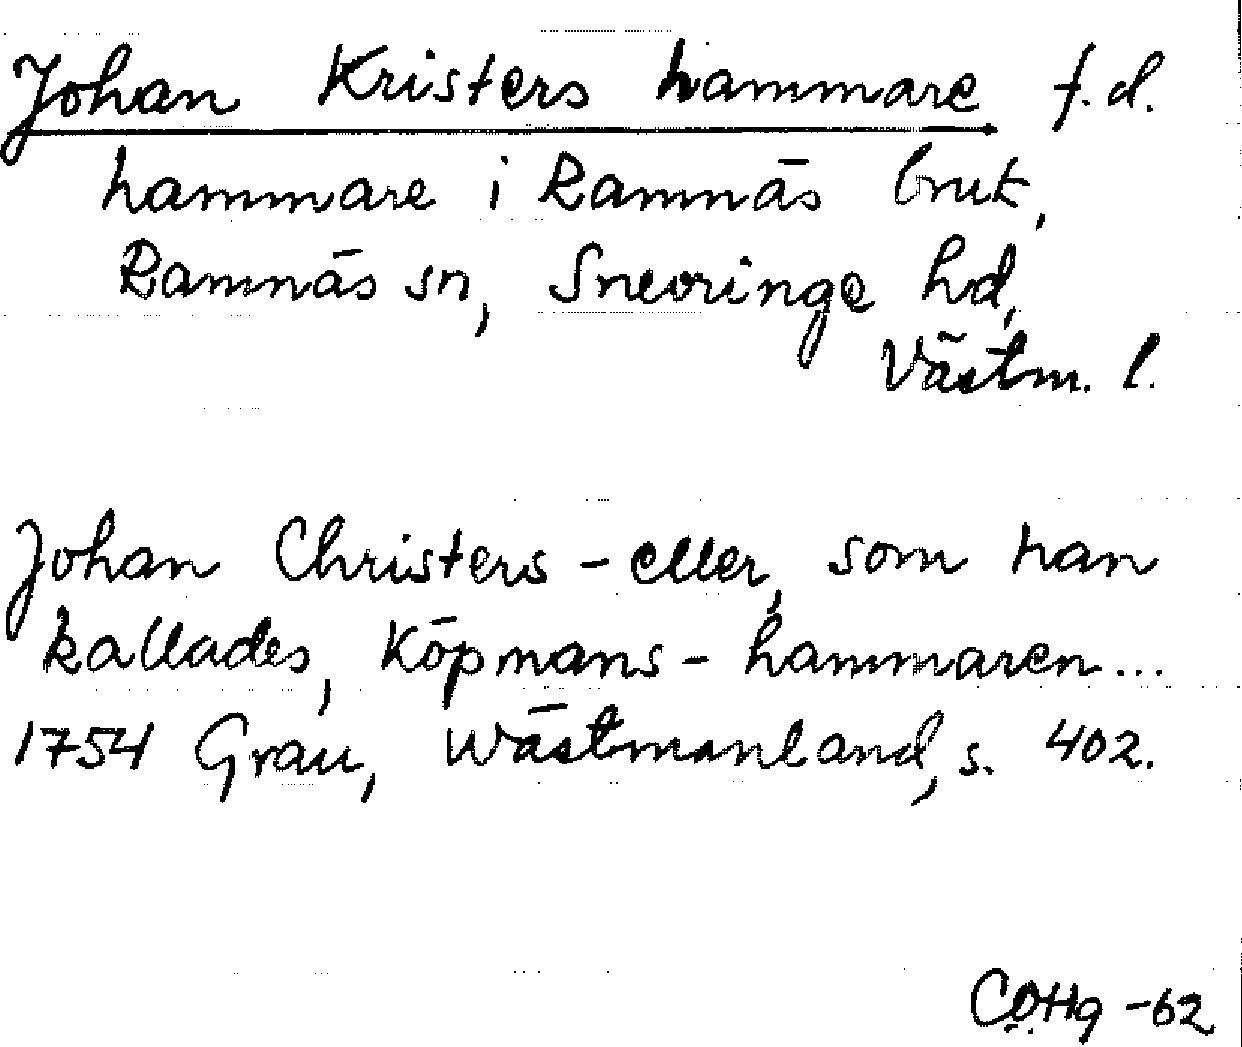 Johan Kristers hammare f.d.
hammare i Ramnäs bruk,
Ramnäs sn, Snevringe hd,
Västm. l.
Johan Christers - eller, som han
kallades, Köpmans - hammaren...
1754 Grau, Wästmanland, s. 402.
COHg -62